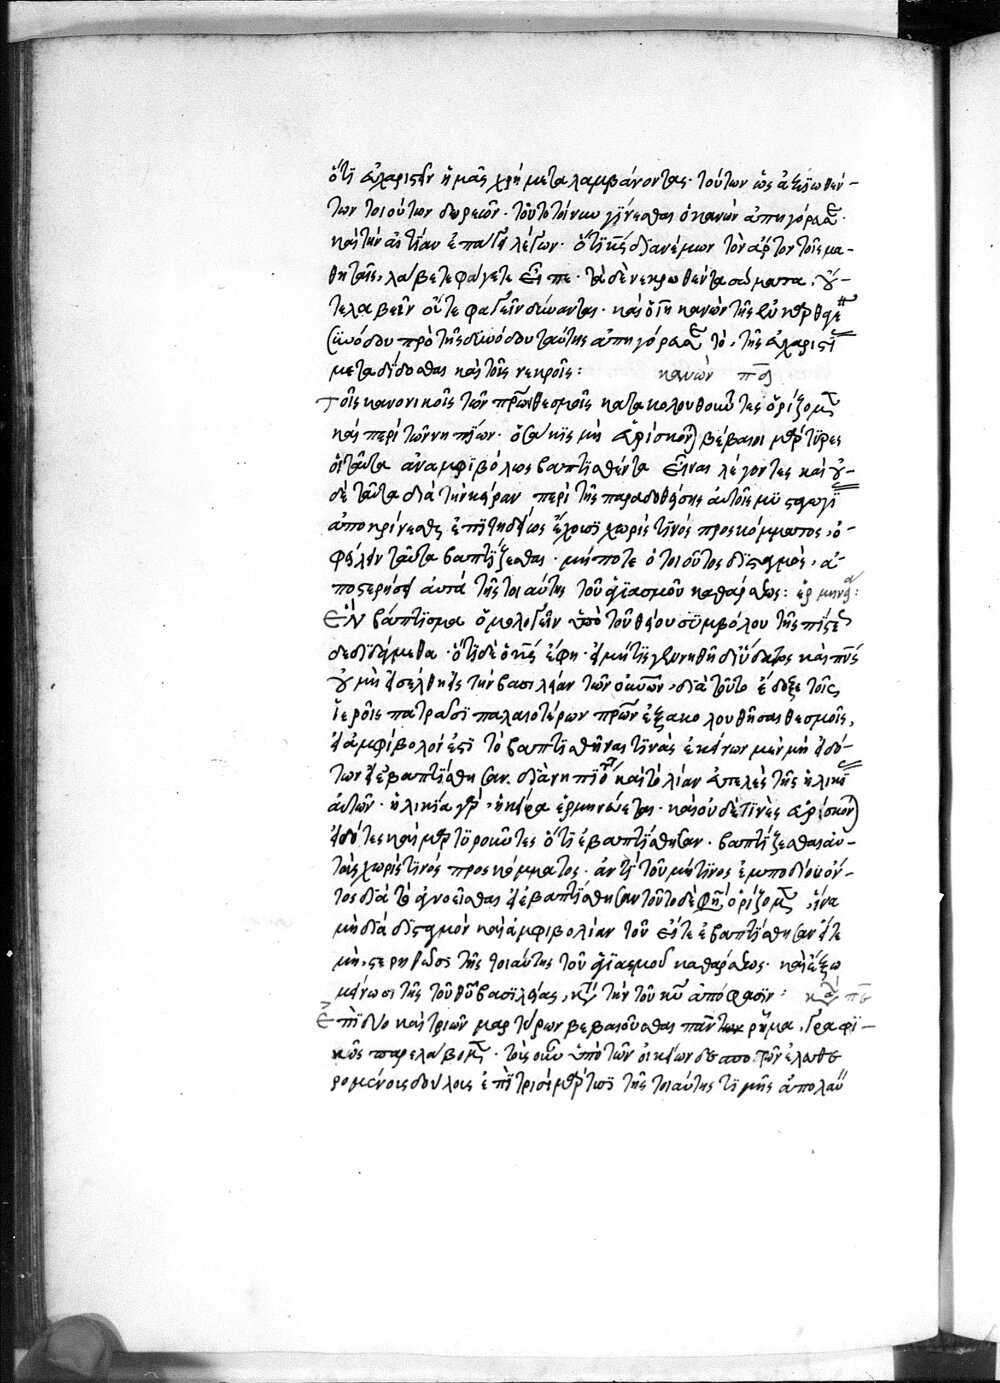 ὅτι εὐχαριστεῖν ἡμᾶς χρὴ μεταλαμβάνοντας τούτων ὡς ἀξιωθέν-
των τοιούτων δωρεῶν· τοῦτο τοίνυν γίνεσθαι ὁ κανὼν ἀπηγόρευσε·
καὶ τὴν αἰτίαν ἐπάγει λέγων· ὅτι ὁ κς διανέμων τὸν ἄρτον τοῖς μα-
θηταῖς, λάβετε φάγετε εἶπε· τὰ δὲ νεκρωθέντα σώματα, οὔ-
τε λαβεῖν οὔτε φαγεῖν δύνανται· καὶ ὁ κανὼν τῆς ἐν
συνόδου πρὸ τῆς συνόδου ταύτης ἀπηγόρευσε τὸ, τῆς εὐχαριστί
μεταδίδοσθαι καὶ τοῖς νεκροῖς: κανὼν πδ
Τοῖς κανονικοῖς τῶν πρων θεσμοῖς κατακολουθοῦντες ὁρίζομ
καὶ περὶ τῶν νηπίων· ὁσάκις μὴ εὑρίσκον βέβαιοι μρτυρες
οἱ ταῦτα ἀναμφιβόλως βαπτισθέντα εἶναι λέγοντες καὶ οὐ-
δὲ ταῦτα διὰ τὴν περὶ τῆς παραδοθείσης αὐτοῖς μυσταγωγί
ἀποκρίνεσθαι ἐπιτηδείως ἔχωσι χωρὶς τινὸς προσκόμματος, ὀ-
φείλειν ταῦτα βαπτίζεσθαι· μήποτε ὁ τοιοῦτος δισταγμὸς, ἀ-
ποστερήσῃ αὐτὰ τῆς τοιαύτης τοῦ ἁγιασμοῦ καθάρσεως: ἑρμηνεία:
Ἓν βάπτισμα ὁμολογεῖν ὑπὸ τοῦ θείου συμβόλου τῆς πίστε
δεδιδάγμεθα· ὅτι δὲ ὁ κς ἔφη· εἰ μή τις γεννηθῇ δι' ὕδατος καὶ πνς
οὐ μὴ εἰσέλθῃ εἰς τὴν βασιλείαν τῶν οὐνων, διὰ τοῦτο ἔδοξε τοῖς
ἱεροῖς πατράσι παλαιοτέρων πρων ἐξακολουθῆσαι θεσμοῖς,
εἰ ἀμφίβολόν ἐστι τὸ βαπτισθῆναι τινὰς ἐκείνων μὲν μὴ εἰδό-
των εἰ ἐβαπτίσθησαν. διὰ νηπιό καὶ τὸ λίαν ἀτελὲς τῆς ἡλικί
αὐτῶν· ἡλικία γρ, ἡ ἑρμηνεύεται· καὶ οὐδὲ τινὲς εὑρίσκον
εἰδότες καὶ μρτυροῦντες ὅτι ἐβαπτίσθησαν· βαπτίζεσθαι αὐ-
τοὺς χωρίς τινὸς προσκόμματος· ἀντὶ τοῦ μή τινος ἐμποδὼν ὄν-
τος διὰ τὸ ἀγνοεῖσθαι εἰ ἐβαπτίσθησαν τοῦτο δὲ φησὶ ὁρίζομ, ἵνα
μὴ διὰ δισταγμὸν καὶ ἀμφιβολίαν τοῦ εἴτε ἐβαπτίσθησαν εἴτε
μὴ, στερηθῶσι τῆς τοιαύτης τοῦ ἁγιασμοῦ καθάρσεως· καὶ ἔξω
μείνωσι τῆς τοῦ θυ βασιλείας, κατὰ τὴν τοῦ κυ ἀπόφασιν: καν πε
Ἐπὶ δύο καὶ τριῶν μαρτύρων βεβαιοῦσθαι πᾶν ῥῆμα, γραφι-
κῶς παρελάβομ· τοὺς οὖν ὑπὸ τῶν οἰκείων δεσποτῶν ἐλευθε
ρομένοις δούλοις ἐπὶ τρισὶ μρτυσι τῆς τοιαύτης τιμῆς ἀπολαύ